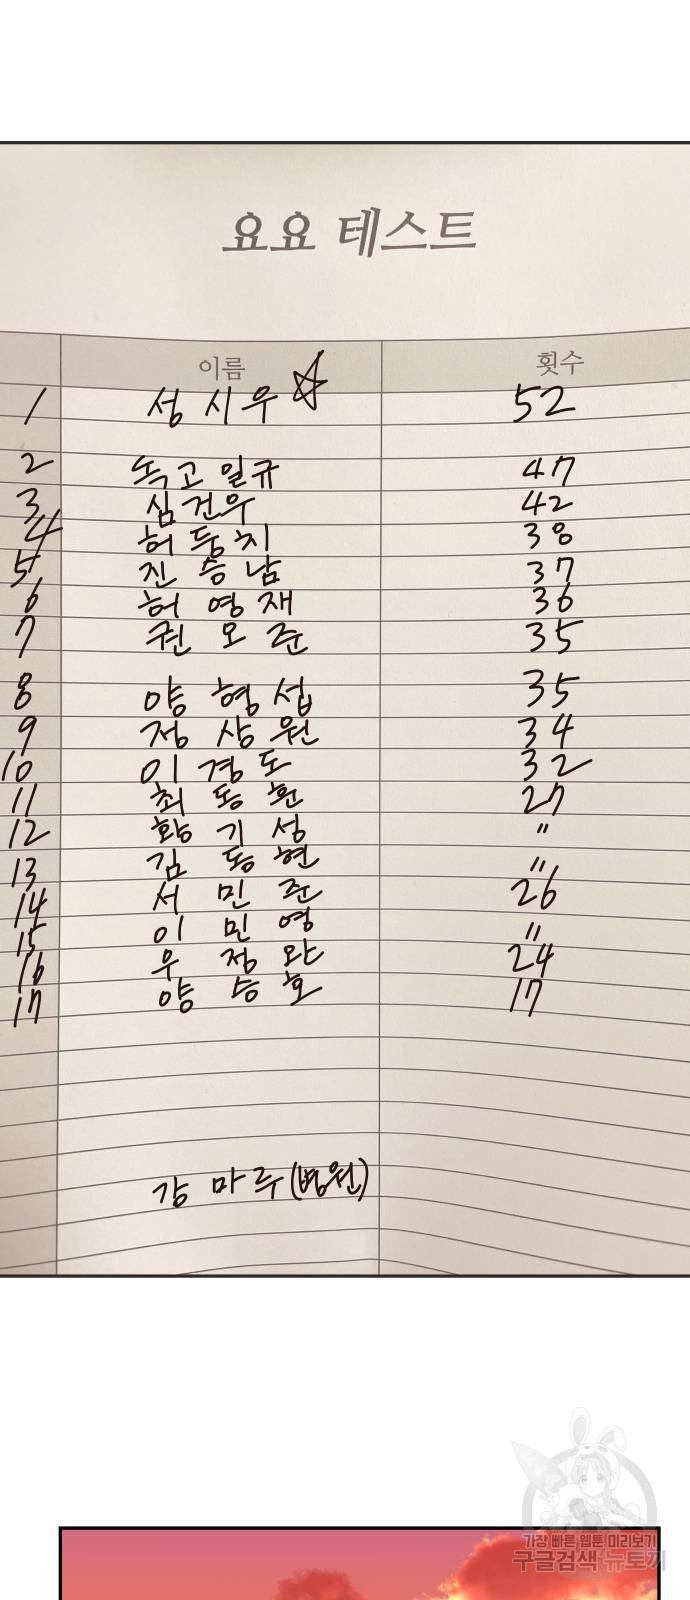 요요 테스트
이름 횟수
1 성시우 ☆ 52
2 독고일규 47
3 심건우 42
4 허둥치 38
5 진승남 37
6 허영재 36
7 권오준 35
8 양형섭 35
9 정상원 34
10 이경도 32
11 최동환 27
12 황기성 "
13 김동현 "
14 서민준 26
15 이민영 "
16 우정완 24
17 양승호 17
강마루(병원)
가장 빠른 웹툰 미리보기
구글검색 뉴토끼